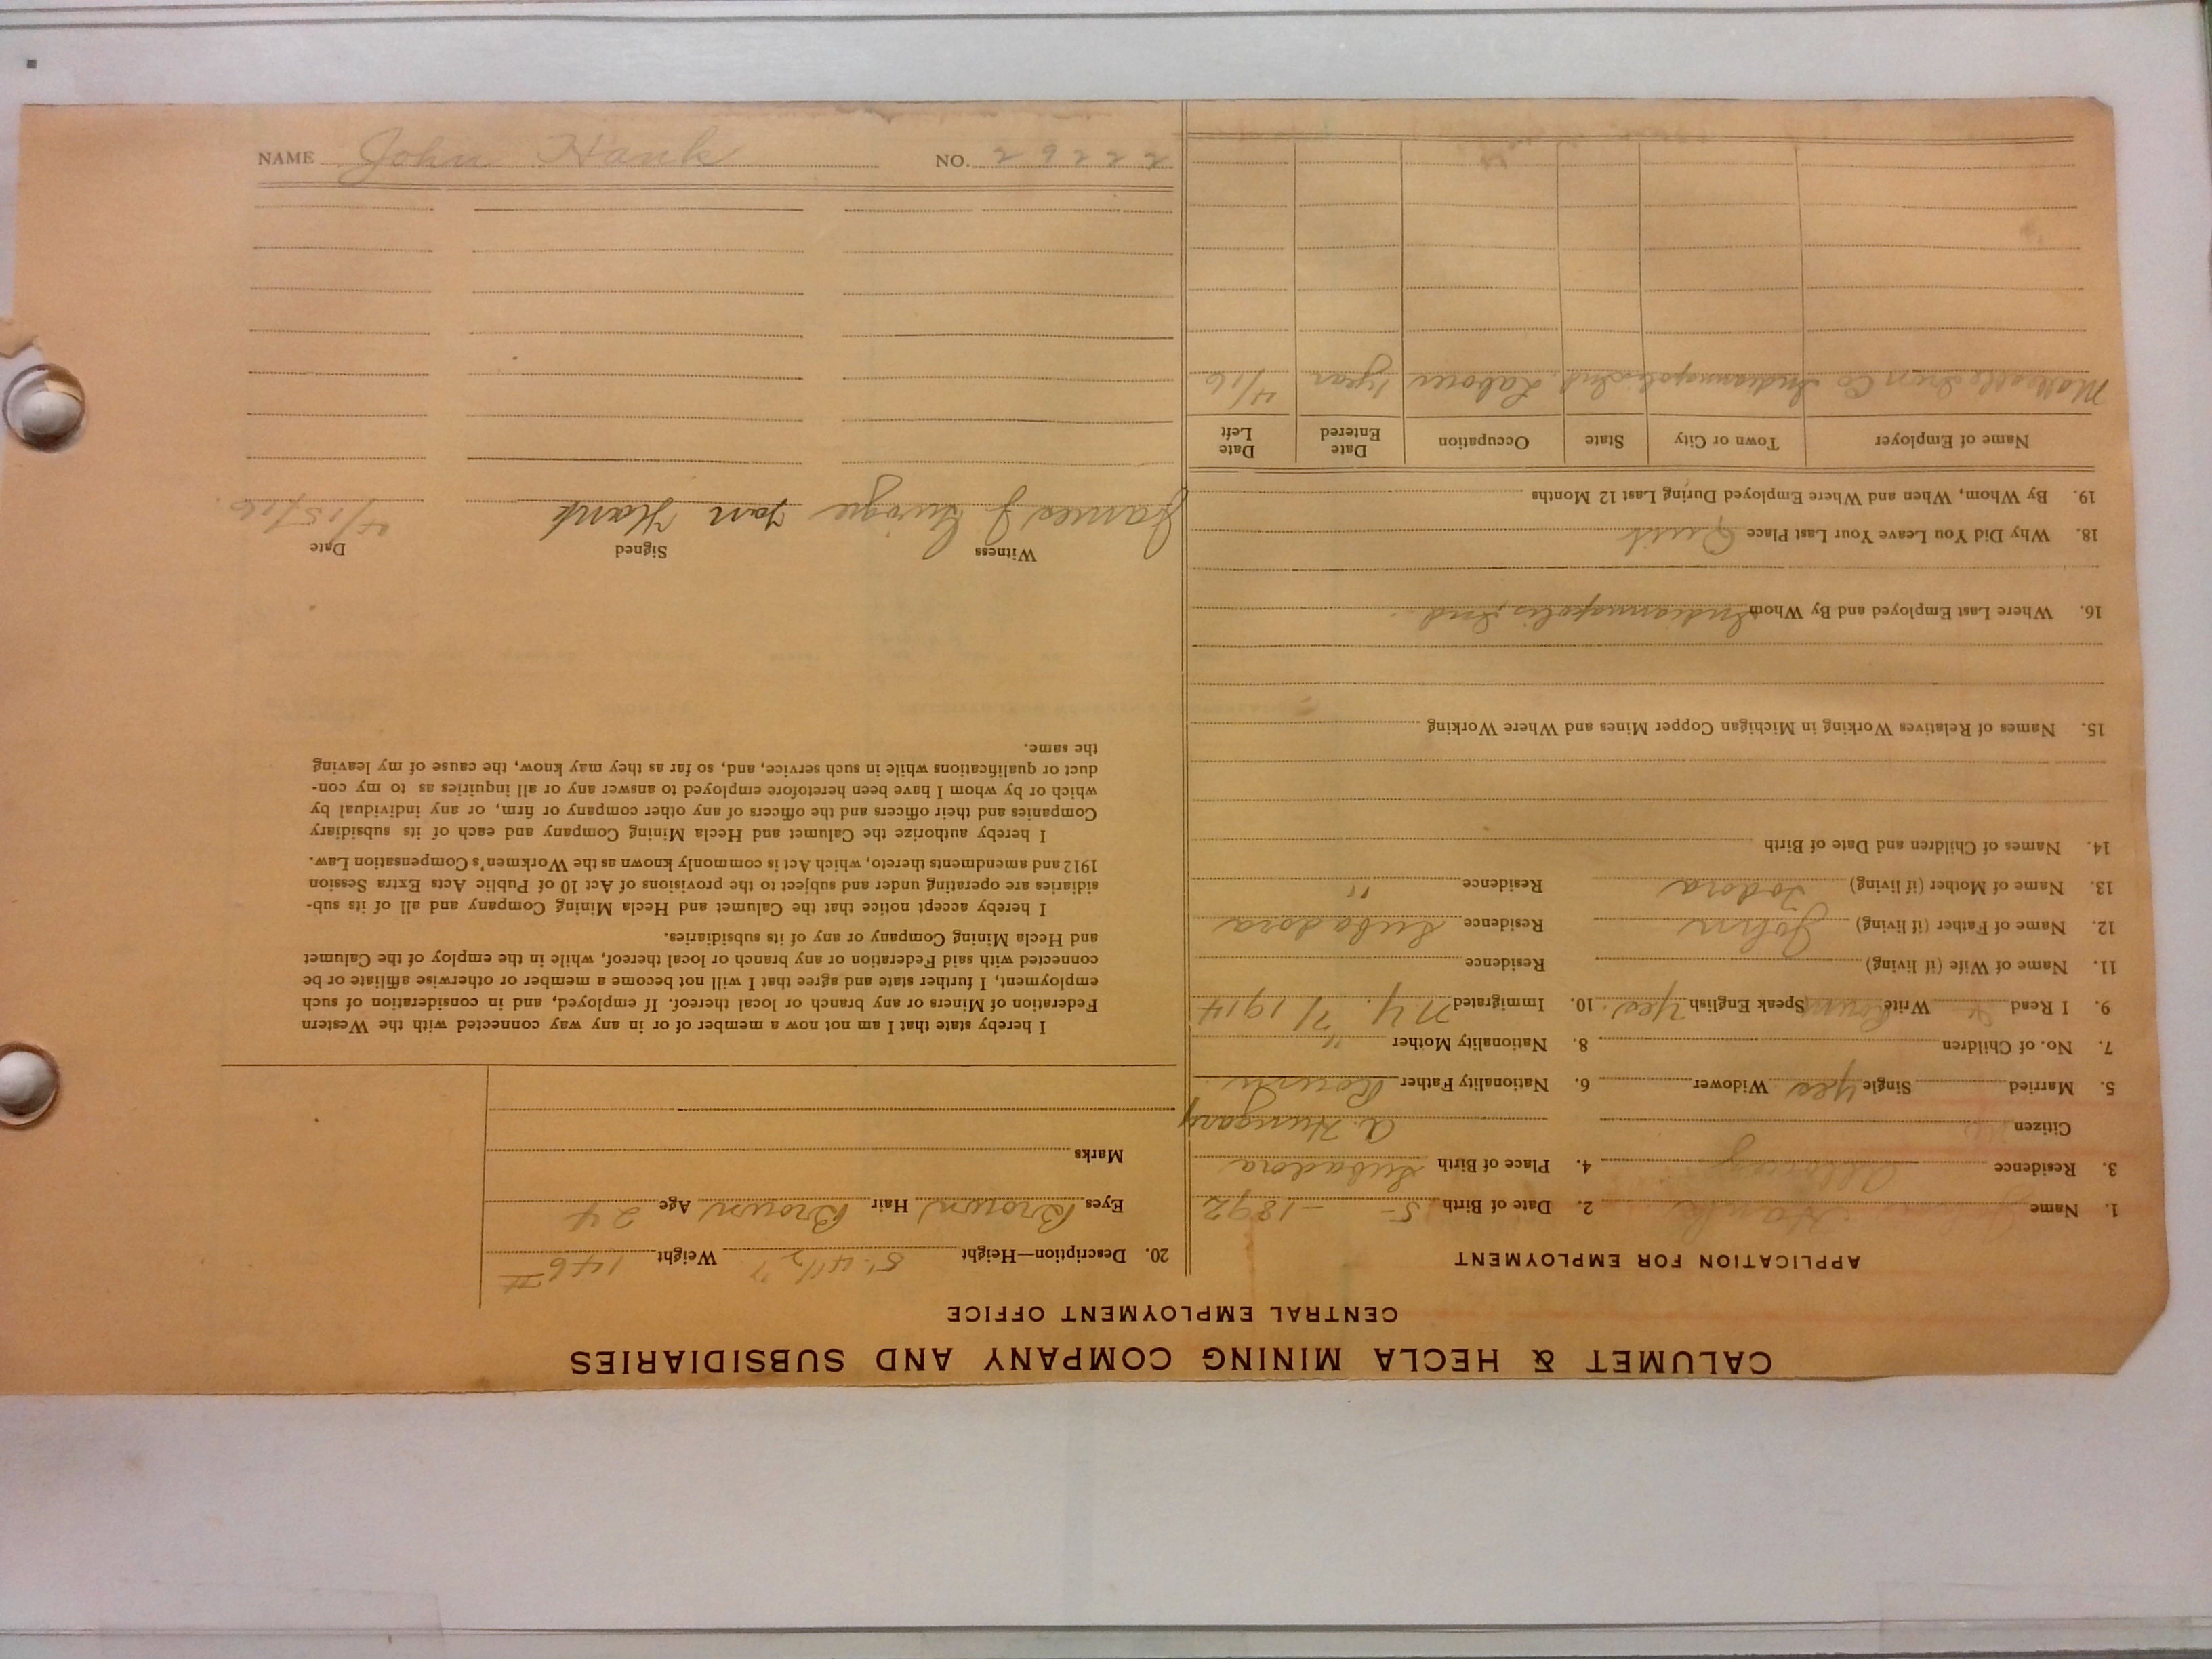 CALUMET & HECLA MINING COMPANY AND SUBSIDIARIES
CENTRAL EMPLOYMENT OFFICE
APPLICATION FOR EMPLOYMENT
1. Name John Hank 2. Date of Birth 5- -1892
3. Residence 4. Place of Birth Subadora
Citizen A. Hungary
5. Married Single yes Widower 6. Nationality Father Roum
7. No. of Children 8. Nationality Mother "
9. I Read Write Roum Speak English yes. 10. Immigrated N.Y. 7/1914
11. Name of Wife (if living) Residence
12. Name of Father (if living) John Residence Subadora
13. Name of Mother (if living) Todora Residence "
14. Names of Children and Date of Birth
15. Names of Relatives Working in Michigan Copper Mines and Where Working
16. Where Last Employed and By Whom Indiannapolis, Ind.
18. Why Did You Leave Your Last Place Quit
19. By Whom, When and Where Employed During Last 12 Months
Name of Employer Town or City State Occupation Date Entered Date Left
Malleable Iron Co Indiannapolis Ind. Laborer 1 year 4/16
20. Description—Height 5'. 4 1/2" Weight 146 #
Eyes Brown Hair Brown Age 24
Marks
I hereby state that I am not now a member of or in any way connected with the Western
Federation of Miners or any branch or local thereof. If employed, and in consideration of such
employment, I further state and agree that I will not become a member or otherwise affiliate or be
connected with said Federation or any branch or local thereof, while in the employ of the Calumet
and Hecla Mining Company or any of its subsidiaries.
I hereby accept notice that the Calumet and Hecla Mining Company and all of its sub-
sidiaries are operating under and subject to the provisions of Act 10 of Public Acts Extra Session
1912 and amendments thereto, which Act is commonly known as the Workmen's Compensation Law.
I hereby authorize the Calumet and Hecla Mining Company and each of its subsidiary
Companies and their officers and the officers of any other company or firm, or any individual by
which or by whom I have been heretofore employed to answer any or all inquiries as to my con-
duct or qualifications while in such service, and, so far as they may know, the cause of my leaving
the same.
Witness Signed Date
James J. Jan Hank 4/15/16.
NAME John Hank NO. 26222